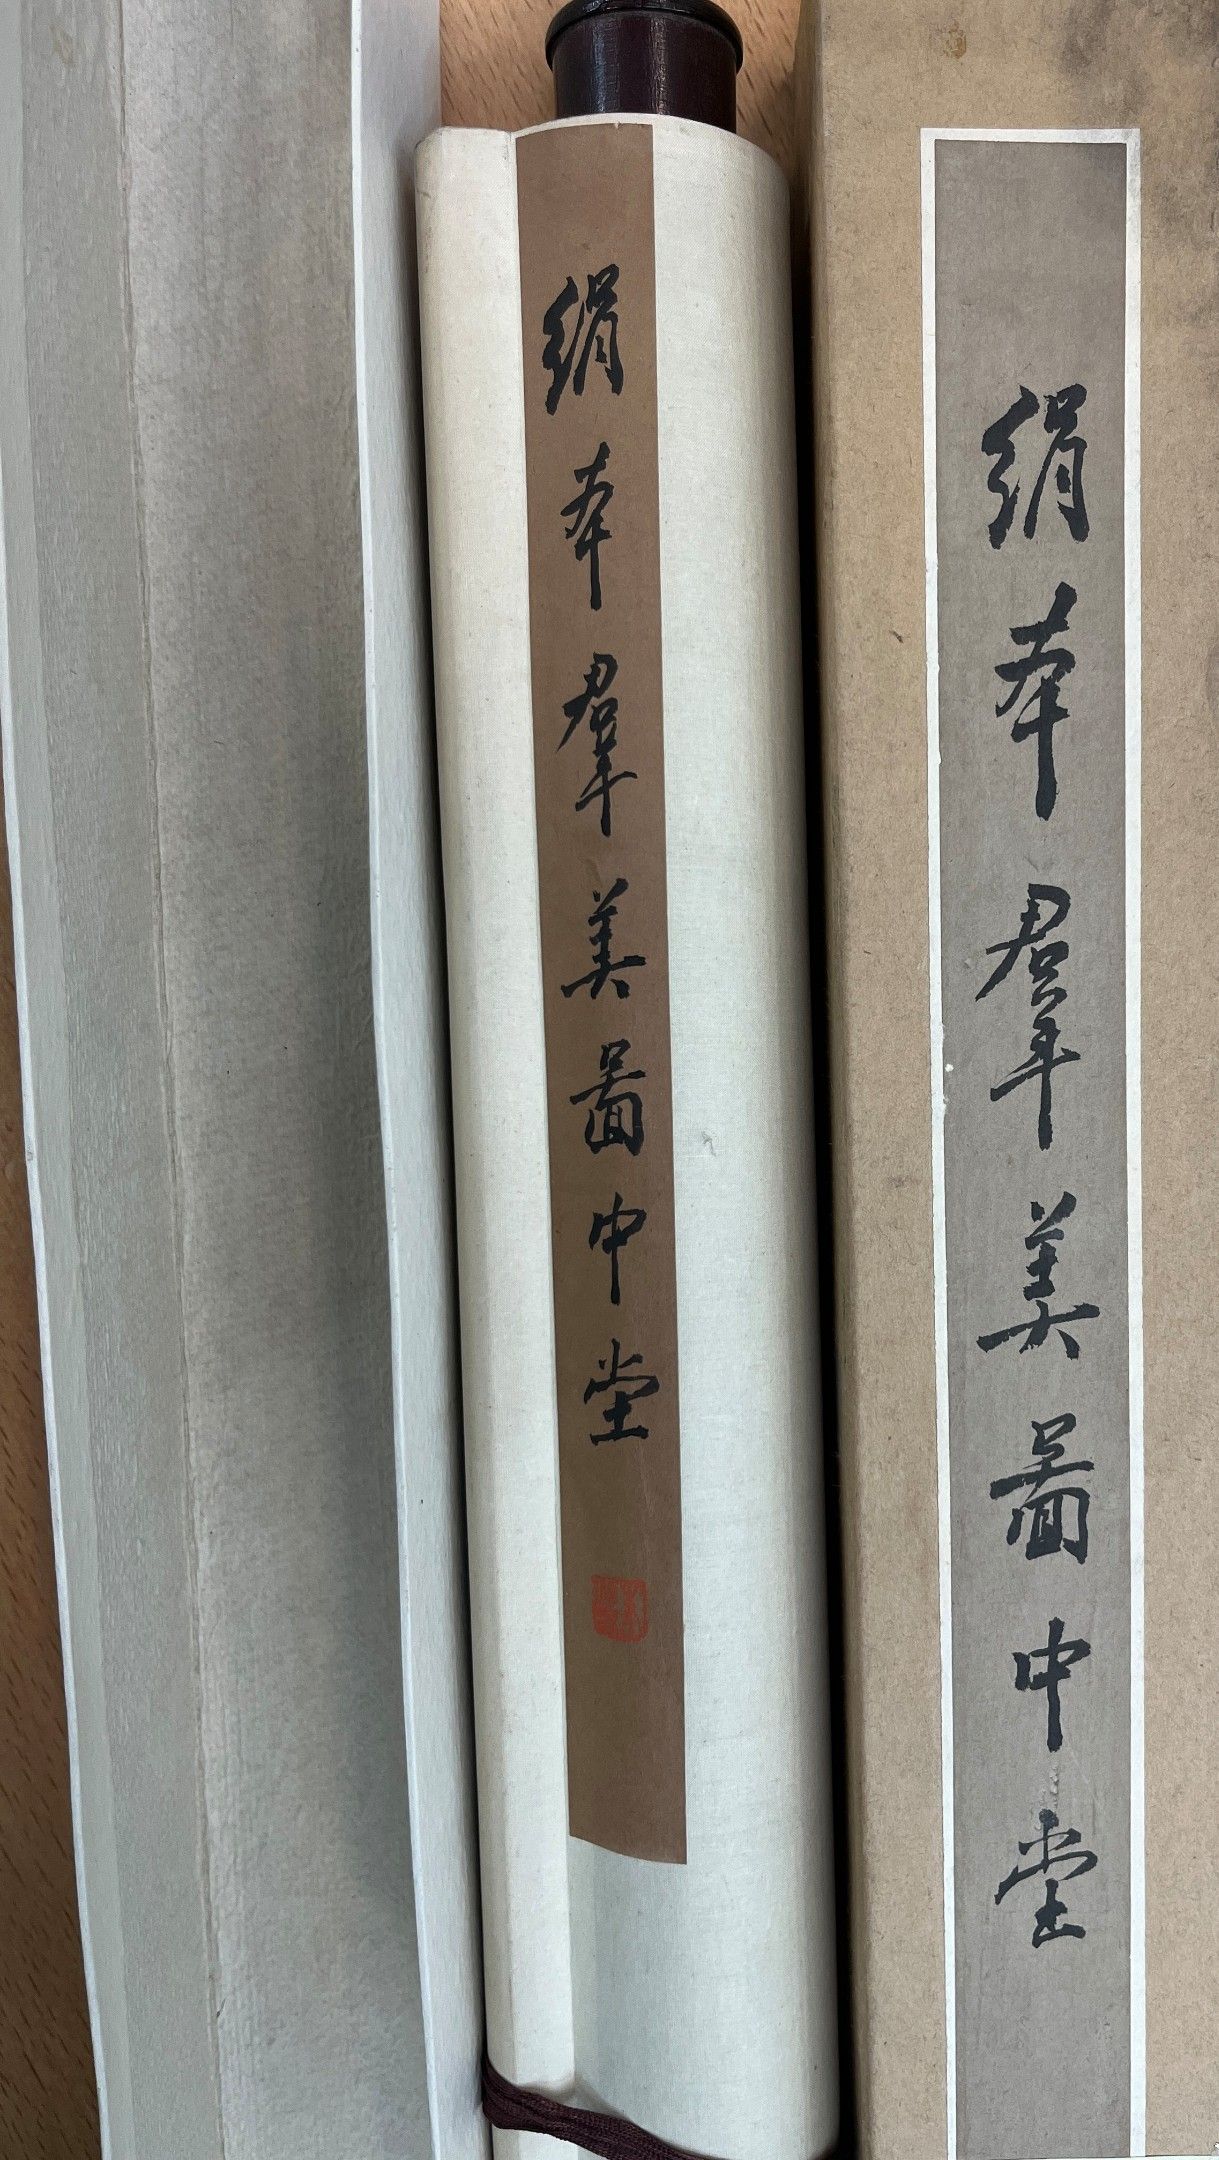 絹本羣美圖中堂
絹本羣美圖中堂